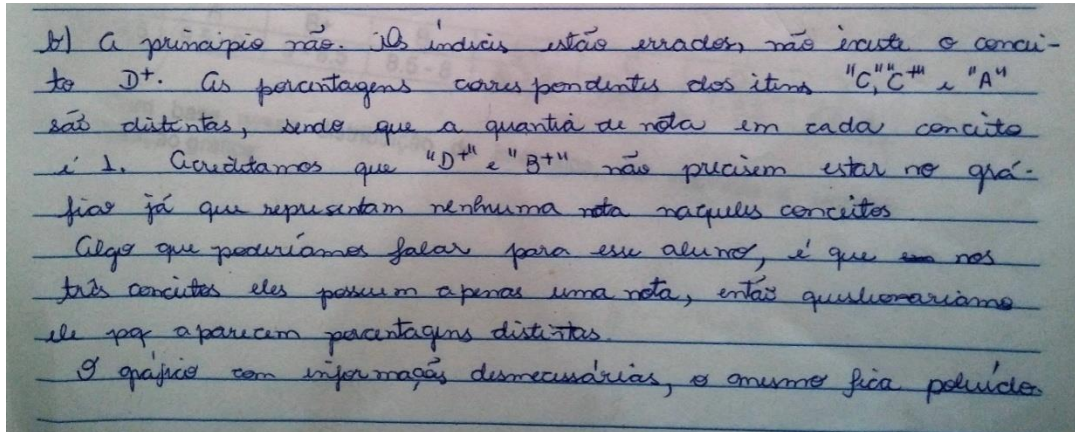 b) A princípio não. Os índicis estão errados, não existe o concei-
to D+. As porcentagens correspondentes dos itens "C", "C+" e "A"
são distintas, sendo que a quantia de nota em cada conceito
é 1. Acreditamos que "D+" e "B+" não precisem estar no grá-
fico já que representam nenhuma nota naqueles conceitos
Algo que poderíamos falar para esse aluno, é que nos
três conceitos eles possuem apenas uma nota, então questionariamo
ele pq aparecem porcentagens distintas.
O gráfico com informações desnecessárias, o mesmo fica poluído